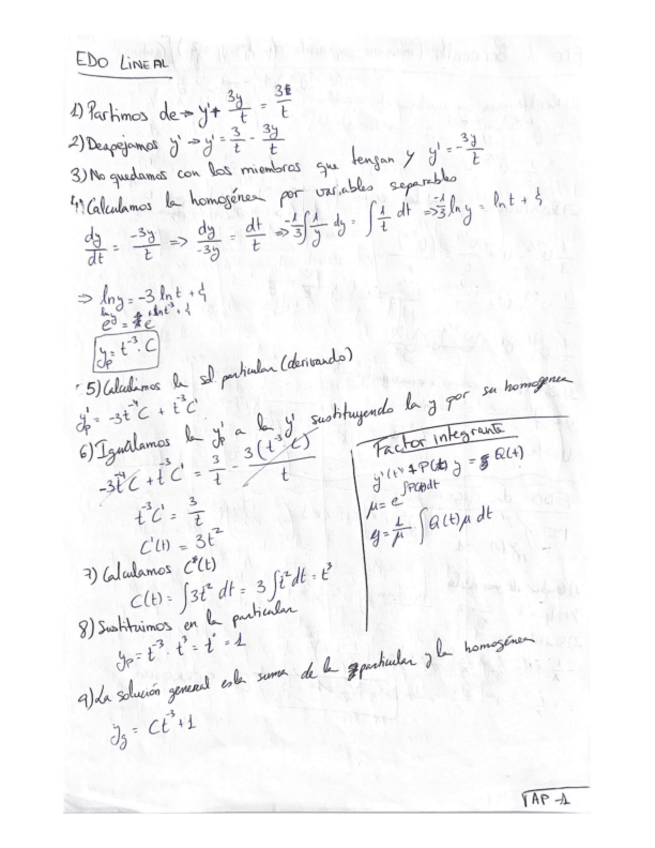 EDO LINEAL
1) Partimos de → y' + 3y/t = 3/t
2) Despejamos y' → y' = 3/t - 3y/t
3) No quedamos con los miembros que tengan y y' = -3y/t
4) Calculamos la homogénea por variables separables
dy/dt = -3y/t => dy/-3y = dt/t => -1/3 ∫ 1/y dy = ∫ 1/t dt => -1/3 ln y = ln t + ξ
=> ln y = -3 ln t + ξ
e^ln y = e^ln t^-3 + ξ
yp = t^-3 · C
5) Calculamos la sol particular (derivando)
y'p = -3t^-4 C + t^-3 C'
6) Igualamos la y'p a la y' sustituyendo la y por su homogenea
-3t^-4 C + t^-3 C' = 3/t - 3(t^-3 · C)/t
t^-3 C' = 3/t
C'(t) = 3t^2
7) Calculamos C(t)
C(t) = ∫ 3t^2 dt = 3 ∫ t^2 dt = t^3
8) Sustituimos en la particular
yp = t^-3 · t^3 = t^0 = 1
9) La solución general es la suma de la particular y la homogénea
yg = Ct^-3 + 1
Factor integrante
y'(t) + P(t) y = Q(t)
μ = e^∫P(t)dt
y = 1/μ ∫ Q(t) μ dt
TAP -1